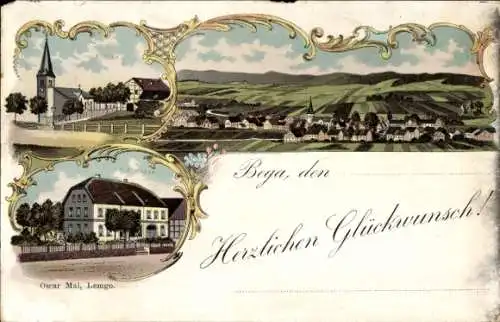 Bega, den
Herzlichen Glückwunsch!
Oscar Mai, Lemgo.